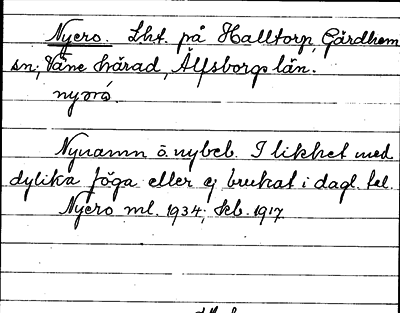 Nyero. Lht. på Halltorp, Gärdhem
sn; Väne härad, Älfsborgs län.
Nynamn o. nybeb. I likhet med
dylika föga eller ej brukat i dagl. tal.
Nyero ml. 1934; kb. 1917